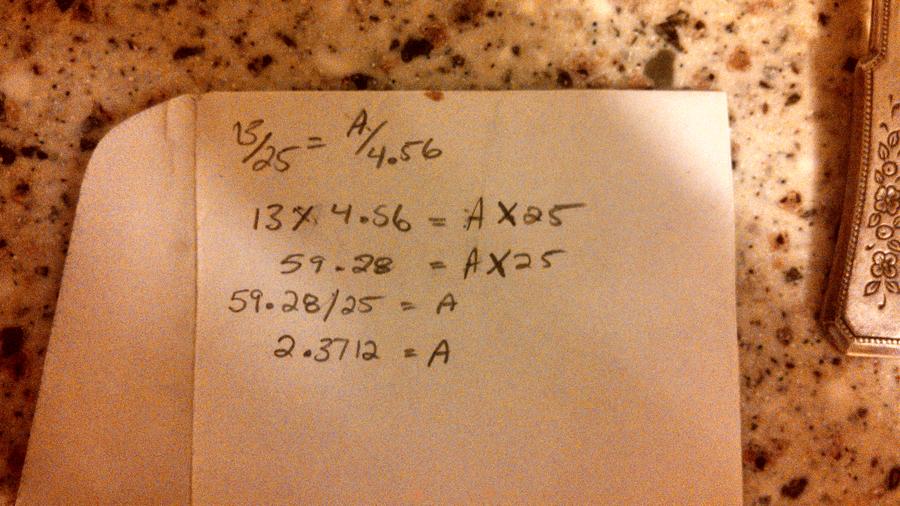 13/25 = A/4.56
13 X 4.56 = A X 25
59.28 = A X 25
59.28/25 = A
2.3712 = A